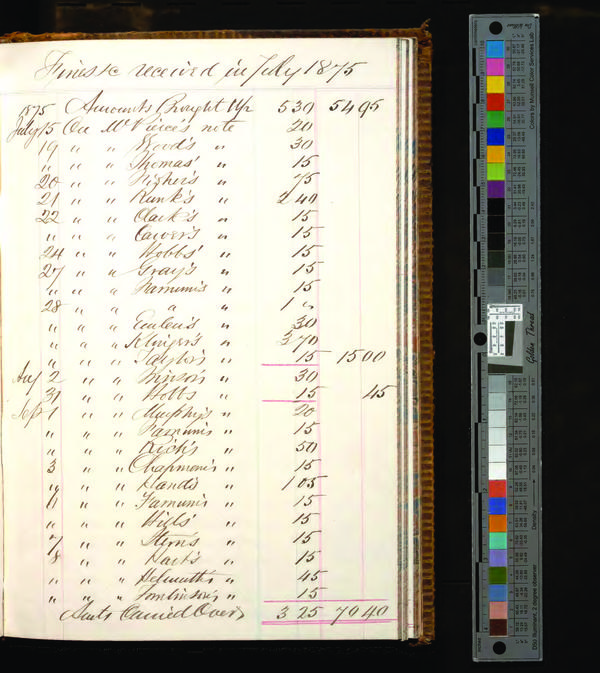 Fines &c received in July 1875
1875 Amounts Brought Up 530 5495
July 15 On Mc Pierce's note 20
19 " " Wood's " 30
" " " Thomas' " 15
20 " " " 75
21 " " Runk's " 2 40
22 " " Clark's " 15
" " " Carver's " 15
24 " " Hobbs' " 15
27 " " Gray's " 15
" " " Farnum's " 15
28 " " " " 1 "
" " " " 30
" " " Klinger's " 3 70
" " " Taylor's " 15 1500
Aug 2 " " " 30
31 " " Hobbs " 15 45
Sept 1 " " Murphy's " 20
" " " Farnum's " 15
" " " Rich's " 50
3 " " Chapman's " 15
" " " Hand's " 1 05
6 " " Farnum's " 15
" " " Hill's " 15
7 " " Stern's " 15
8 " " Hart's " 15
" " " Helmuth's " 45
" " " Tomlinson's " 15
Amts Carried Over 3 25 7040
Golden Thread